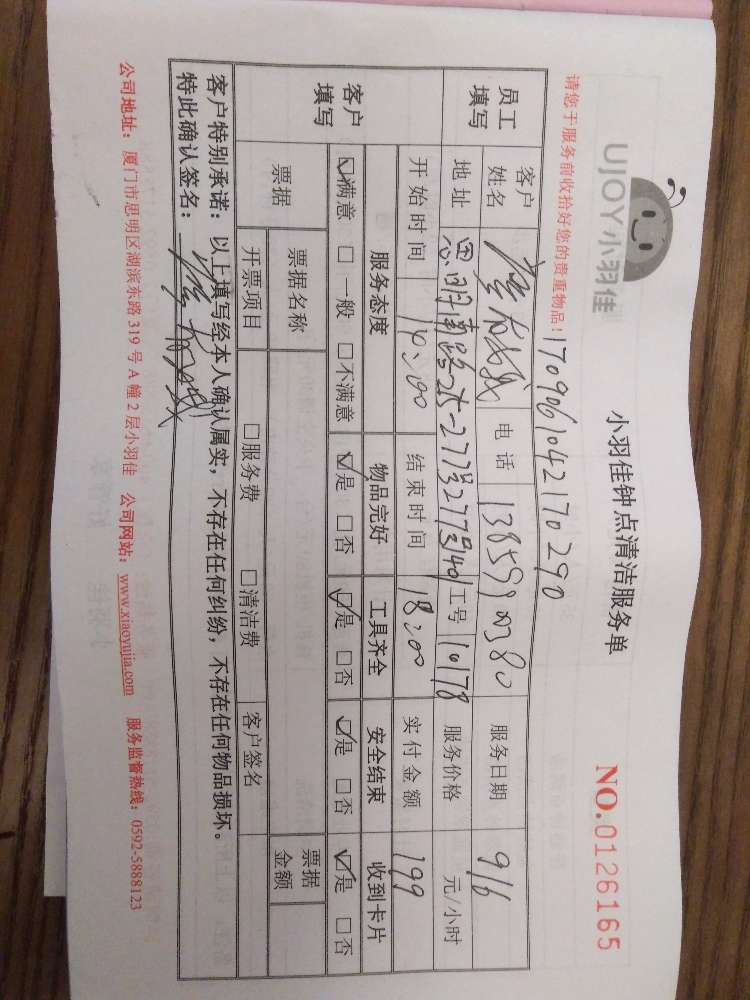 UJOY小羽佳
小羽佳钟点清洁服务单
NO.0126165
请您于服务前收拾好您的贵重物品！
1709061042170290
员工填写 客户姓名 电话 服务日期 9/6
地址 思明南路275-277号277号401 工号 10178 服务价格 元/小时
客户填写 开始时间 14:00 结束时间 18:00 实付金额 199
服务态度 物品完好 工具齐全 安全结束 收到卡片
☑满意 □一般 □不满意 ☑是 □否 ☑是 □否 ☑是 □否 ☑是 □否
票据 票据名称 票据金额
开票项目 □服务费 □清洁费 客户签名
客户特别承诺：以上填写经本人确认属实，不存在任何纠纷，不存在任何物品损坏。
特此确认签名：
公司地址：厦门市思明区湖滨东路319号A幢2层小羽佳 公司网站：www.xiaoyujia.com 服务监督热线：0592-5888123